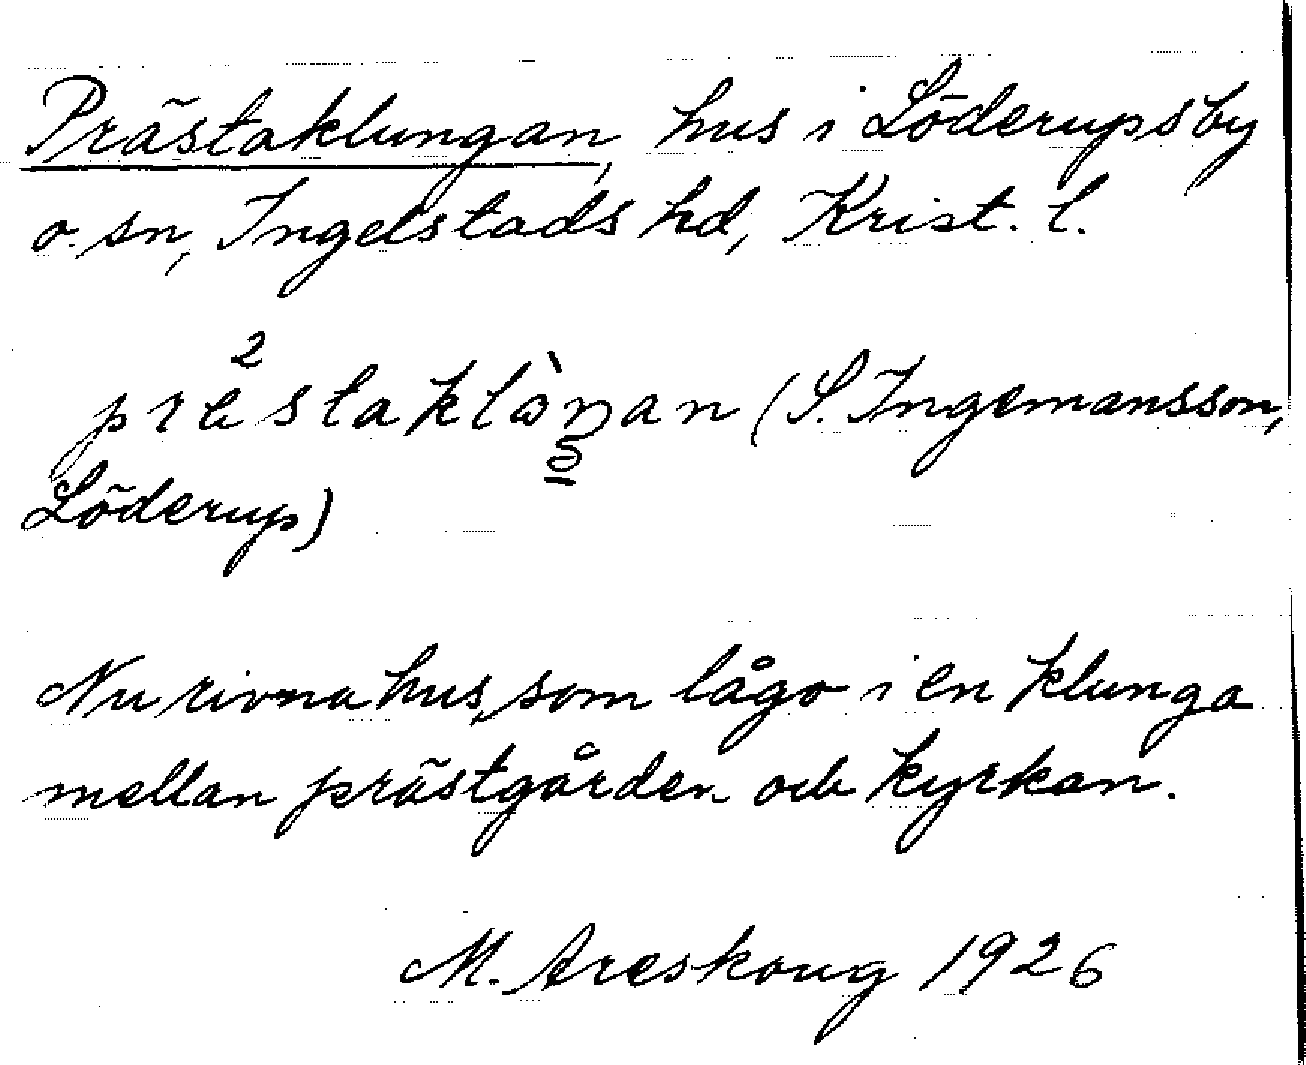 Prästaklungan, hus i Löderups by
o. sn, Ingelstads hd, Krist. l.
(S. Ingemansson,
Löderup)
Nu rivna hus, som lågo i en klunga
mellan prästgården och kyrkan.
M. Areskoug 1926